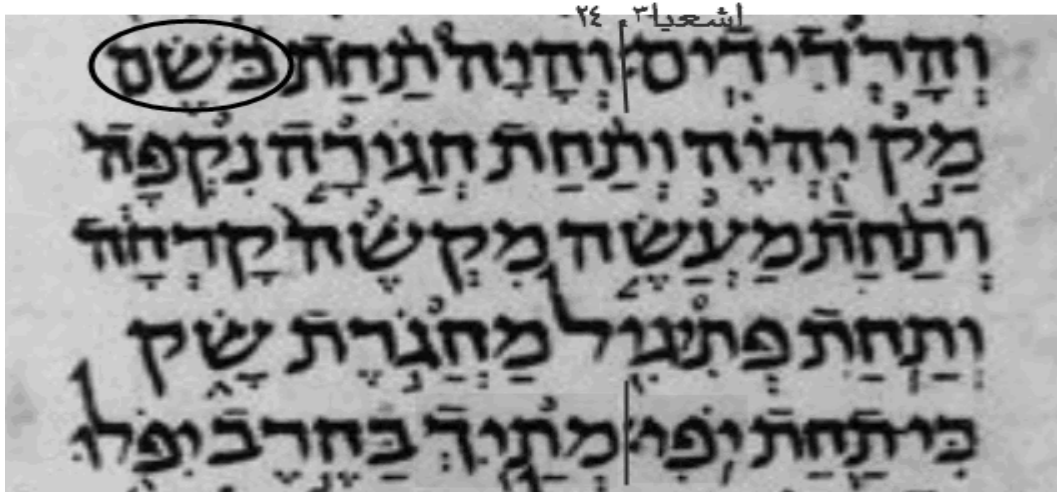 اشعيا ٣ ٢٤
וְהָרְדִידִים׃ וְהָיָה תַחַת בֹּשֶׂם
מַק יִהְיֶה וְתַחַת חֲגוֹרָה נִקְפָּה
וְתַחַת מַעֲשֶׂה מִקְשֶׁה קָרְחָה
וְתַחַת פְּתִיגִיל מַחֲגֹרֶת שָׂק
כִּי־תַחַת יֹפִי׃ מְתַיִךְ בַּחֶרֶב יִפֹּלוּ